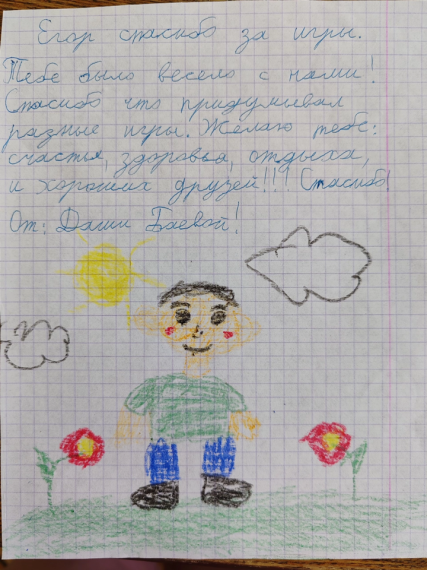 Егор спасибо за игры.
Тебе было весело с нами!
Спасибо что придумывал
разные игры. Желаю тебе:
счастья, здоровья, отдыха,
и хороших друзей!!! Спасибо!
От: Даши Баевой!